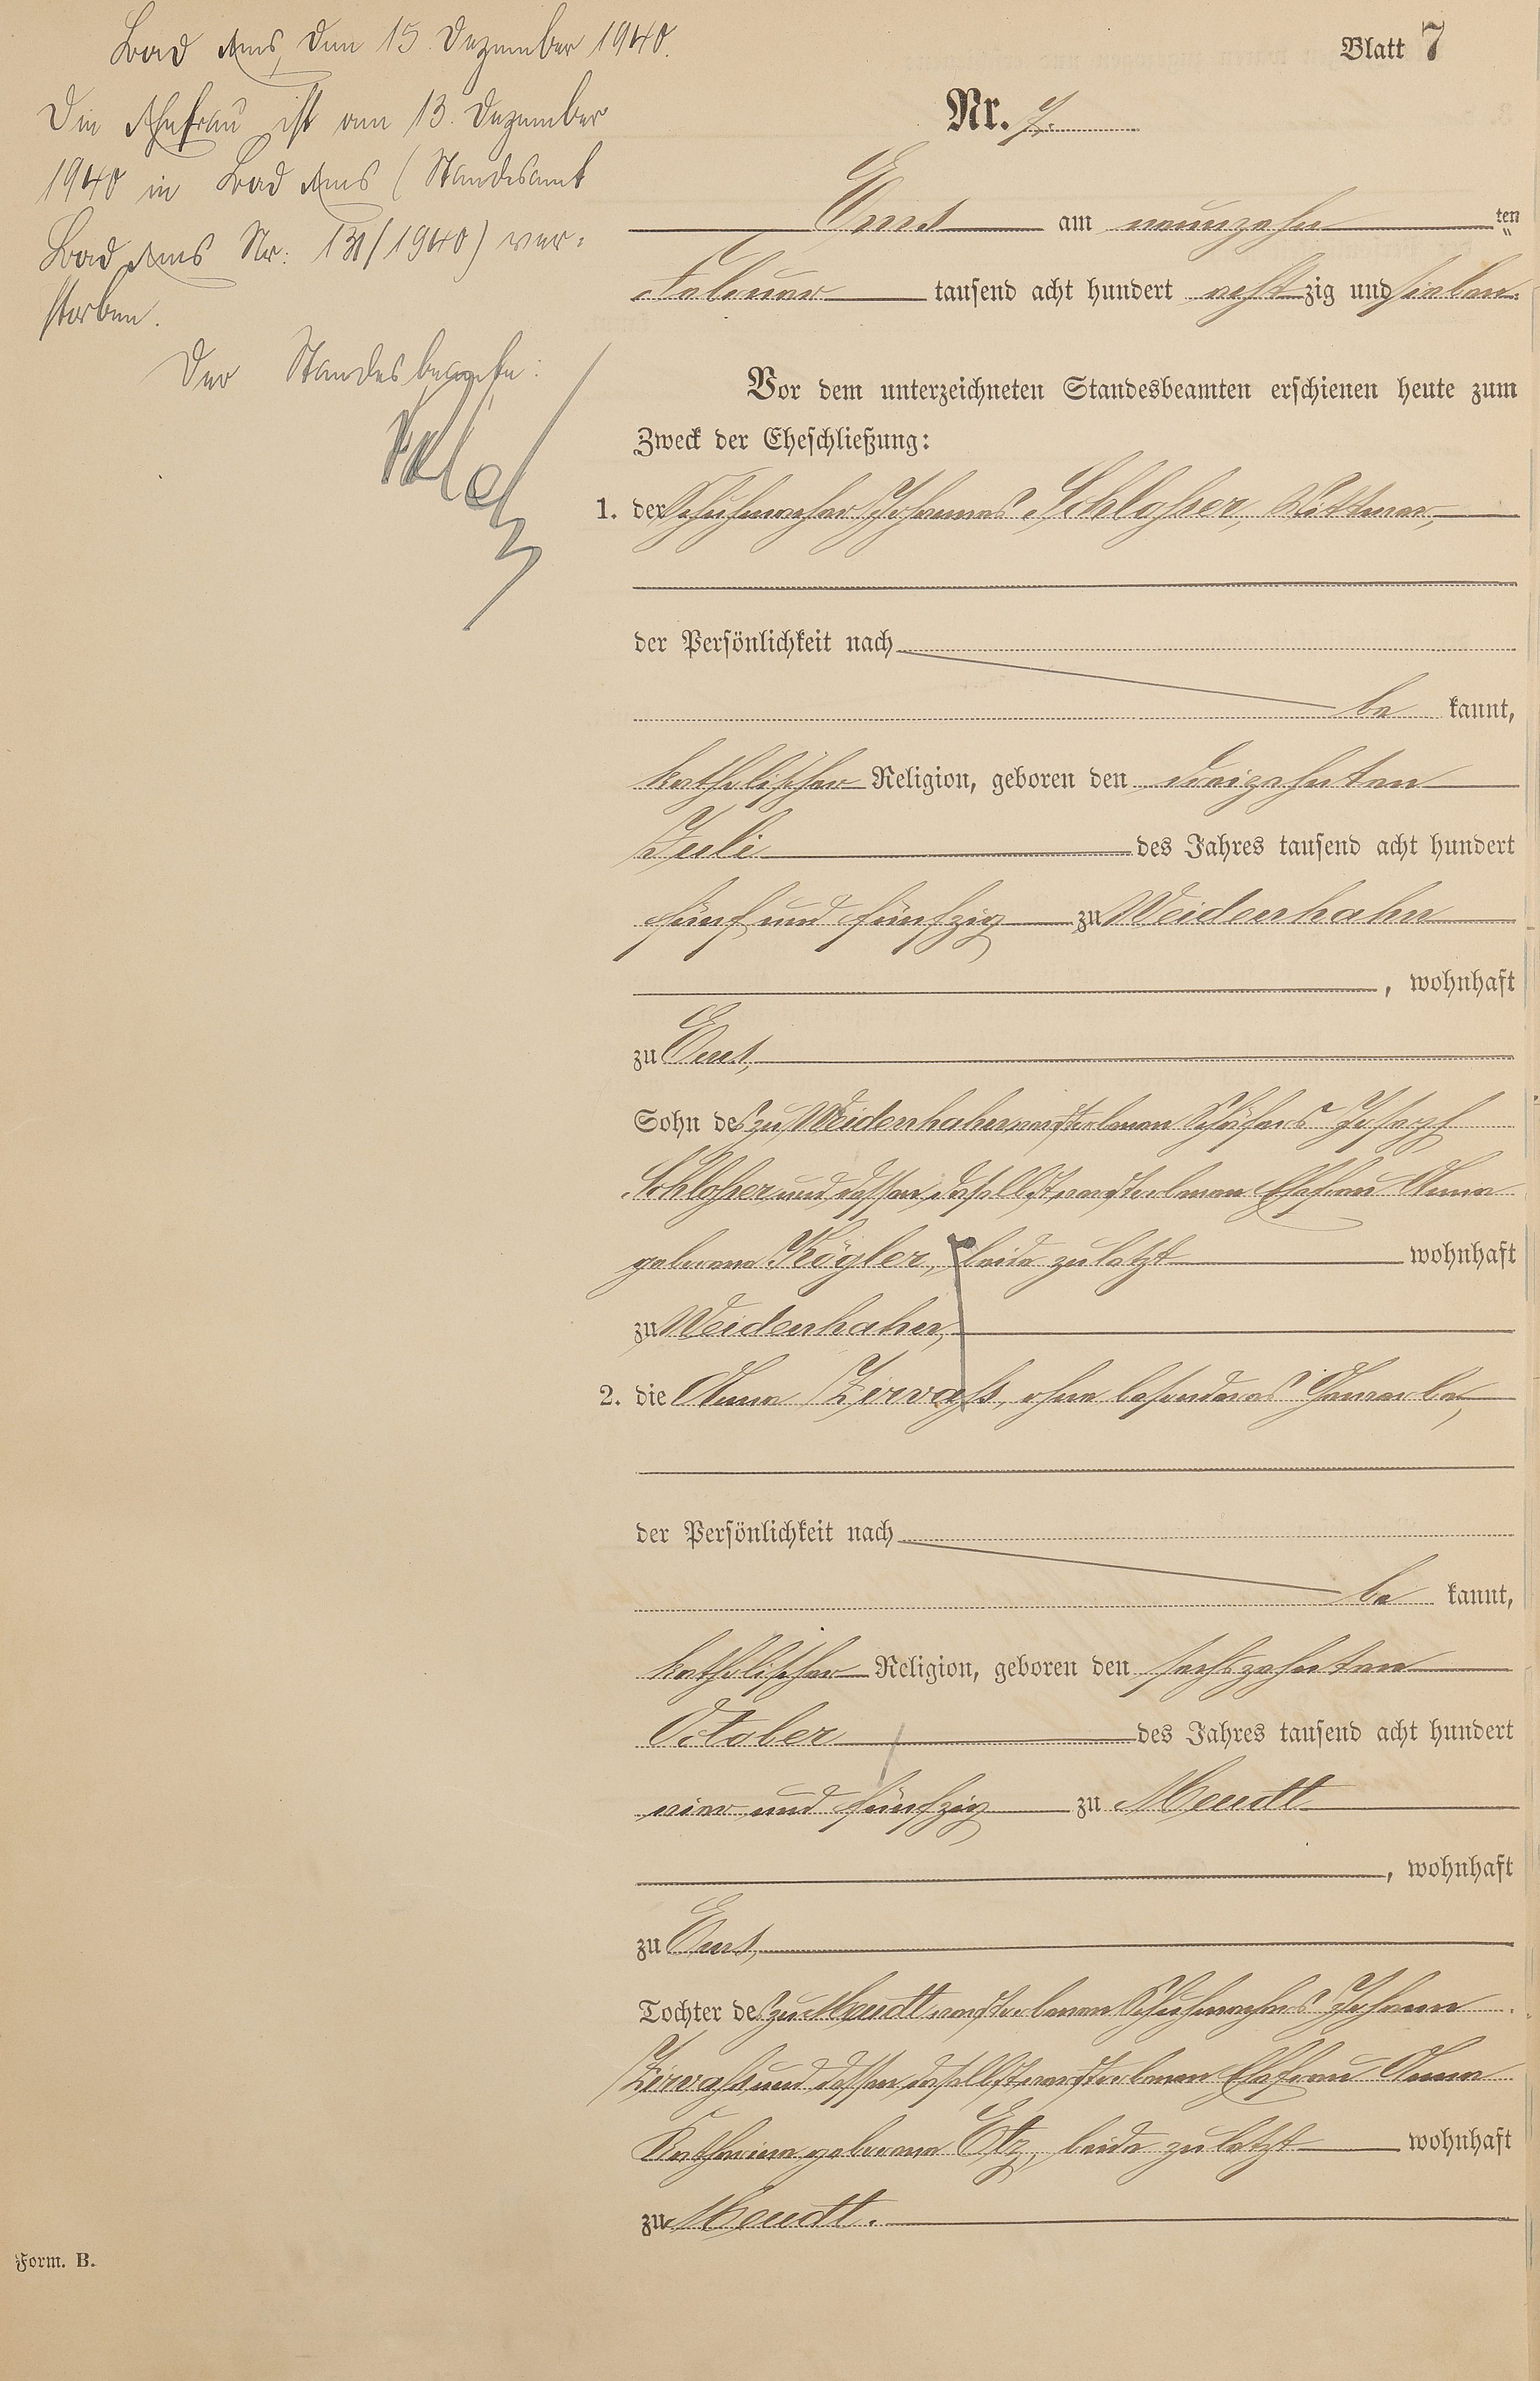 Bad Ems, den 15. Dezember 1940.
Die Ehefrau ist am 13. Dezember
1940 in Bad Ems (Standesamt
Bad Ems Nr. 131/1940) ver-
storben.
Der Standesbeamte:
Blatt 7
Nr. 7.
Ems am neunzehn ten
Februar tausend acht hundert acht zig und sieben.
Vor dem unterzeichneten Standesbeamten erschienen heute zum
Zweck der Eheschließung:
1. der Schuhmacher Johannes Schloßer, Wittwer,
der Persönlichkeit nach
be kannt,
katholischer Religion, geboren den dreizehnten
Juli des Jahres tausend acht hundert
fünf und fünfzig zu Weidenhahn
, wohnhaft
zu Ems,
Sohn des zu Weidenhahn verstorbenen Schäfers Joseph
Schloßer und dessen daselbst verstorbenen Ehefrau Anna
geborene Kögler, beide zuletzt wohnhaft
zu Weidenhahn,
2. die Anna Zirvaß, ohne besonderes Gewerbe,
der Persönlichkeit nach
be kannt,
katholischer Religion, geboren den sechszehnten
October des Jahres tausend acht hundert
vier und fünfzig zu Meudt
, wohnhaft
zu Ems,
Tochter des zu Meudt verstorbenen Schuhmachers Johann
Zirvaß und dessen daselbst verstorbenen Ehefrau Anna
Katharina geborene Etz, beide zuletzt wohnhaft
zu Meudt.
Form. B.